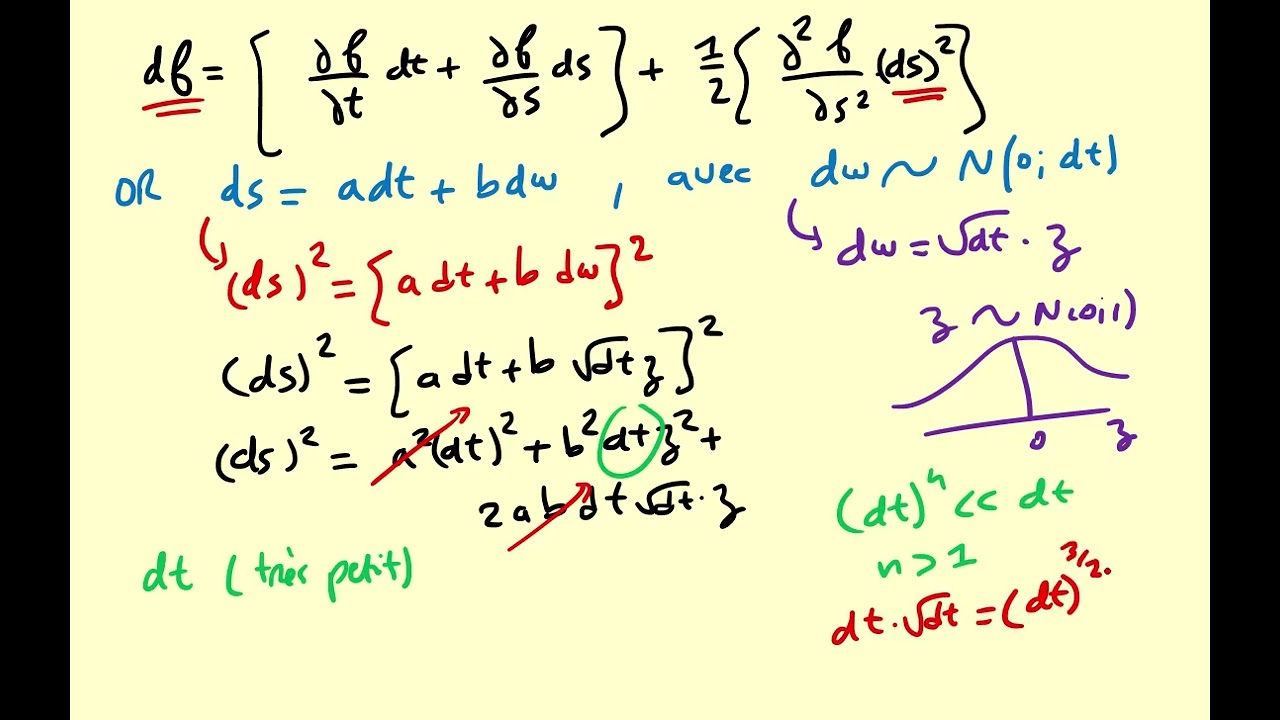 df = [ ∂f/∂t dt + ∂f/∂s ds ] + 1/2 [ ∂²f/∂s² (ds)² ]
OR ds = adt + bdw , avec dw ~ N(0; dt)
dw = √dt · z
(ds)² = [a dt + b dw]²
z ~ N(0;1)
(ds)² = [a dt + b √dt z]²
(ds)² = a²(dt)² + b² dt z² +
0 z
2 a b dt √dt · z
(dt)ⁿ << dt
dt (très petit)
n > 1
dt · √dt = (dt)^3/2.